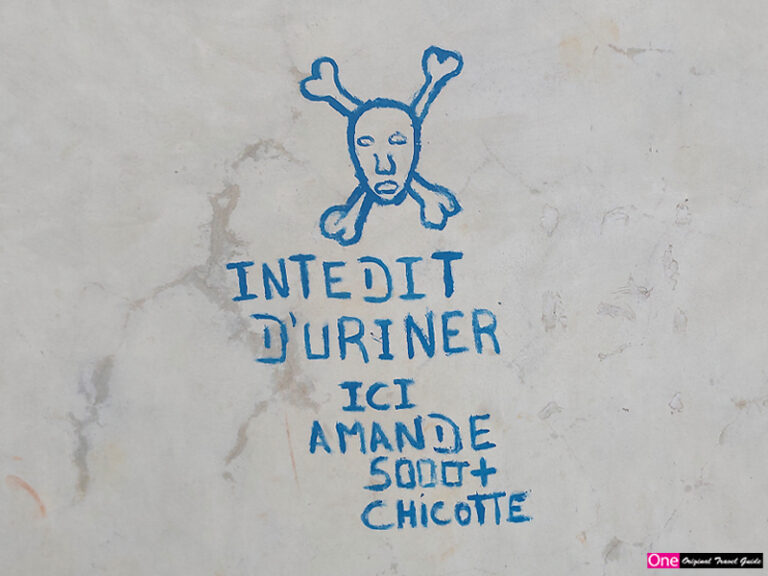 INTEDIT
D'URINER
ICI
AMANDE
5000+
CHICOTTE
One Original Travel Guide